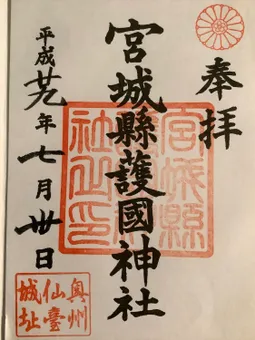 奉拝
宮城縣護國神社
宮城縣護國神社之印
平成廿九年七月卅日
奥州仙臺城址